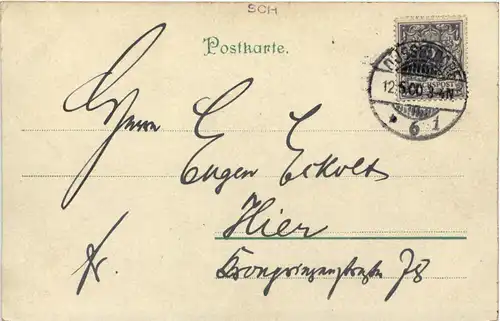 SCH
Postkarte.
DÜSSELDORF
12.5.00 3-4N
* 6 1
Herrn
Eugen Eckolt
Hier
Fr.
Kronprinzenstraße 78